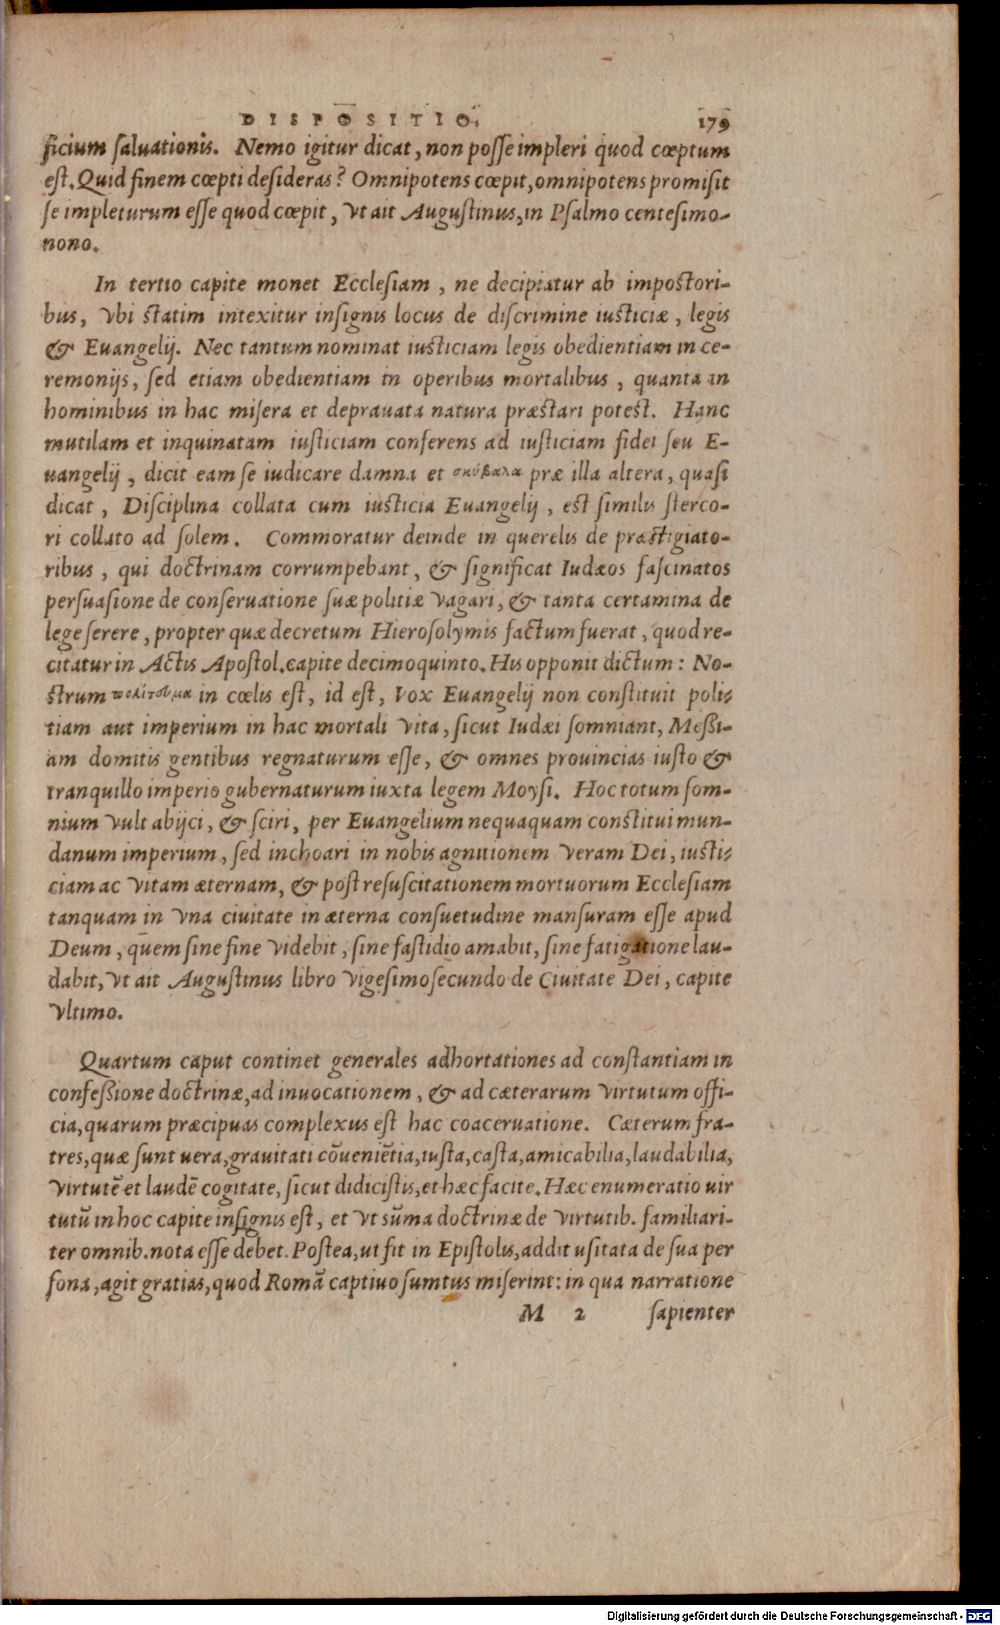 DISPOSITIO. 179
ficium saluationis. Nemo igitur dicat, non posse impleri quod cœptum
est. Quid finem cœpti desideras? Omnipotens cœpit, omnipotens promisit
se impleturum esse quod cœpit, vt ait Augustinus, in Psalmo centesimo-
nono.
In tertio capite monet Ecclesiam, ne decipiatur ab impostori-
bus, vbi statim intexitur insignis locus de discrimine iusticiæ, legis
& Euangelij. Nec tantum nominat iusticiam legis obedientiam in ce-
remonijs, sed etiam obedientiam in operibus mortalibus, quanta in
hominibus in hac misera et deprauata natura præstari potest. Hanc
mutilam et inquinatam iusticiam conferens ad iusticiam fidei seu E-
uangelij, dicit eam se iudicare damna et σκύβαλα præ illa altera, quasi
dicat, Disciplina collata cum iusticia Euangelij, est similis sterco-
ri collato ad solem. Commoratur deinde in querelis de præstigiato-
ribus, qui doctrinam corrumpebant, & significat Iudæos fascinatos
persuasione de conseruatione suæ politiæ vagari, & tanta certamina de
lege serere, propter quæ decretum Hierosolymis factum fuerat, quod re-
citatur in Actis Apostol. capite decimoquinto. His opponit dictum: No-
strum πολίτευμα in cœlis est, id est, Vox Euangelij non constituit poli-
tiam aut imperium in hac mortali vita, sicut Iudæi somniant, Messi-
am domitis gentibus regnaturum esse, & omnes prouincias iusto &
tranquillo imperio gubernaturum iuxta legem Moysi. Hoc totum som-
nium vult abijci, & sciri, per Euangelium nequaquam constitui mun-
danum imperium, sed inchoari in nobis agnitionem veram Dei, iusti-
ciam ac vitam æternam, & post resuscitationem mortuorum Ecclesiam
tanquam in vna ciuitate in æterna consuetudine mansuram esse apud
Deum, quem sine fine videbit, sine fastidio amabit, sine fatigatione lau-
dabit, vt ait Augustinus libro vigesimosecundo de Ciuitate Dei, capite
vltimo.
Quartum caput continet generales adhortationes ad constantiam in
confessione doctrinæ, ad inuocationem, & ad cæterarum virtutum offi-
cia, quarum præcipuas complexus est hac coaceruatione. Cæterum fra-
tres, quæ sunt uera, grauitati cōueniētia, iusta, casta, amicabilia, laudabilia,
virtutē et laudē cogitate, sicut didicistis, et hæc facite. Hæc enumeratio uir
tutū in hoc capite insignis est, et vt sūma doctrinæ de virtutib. familiari-
ter omnib. nota esse debet. Postea, ut fit in Epistolis, addit usitata de sua per
sona, agit gratias, quod Romā captiuo sumtus miserint: in qua narratione
M 2 sapienter
Digitalisierung gefördert durch die Deutsche Forschungsgemeinschaft - DFG